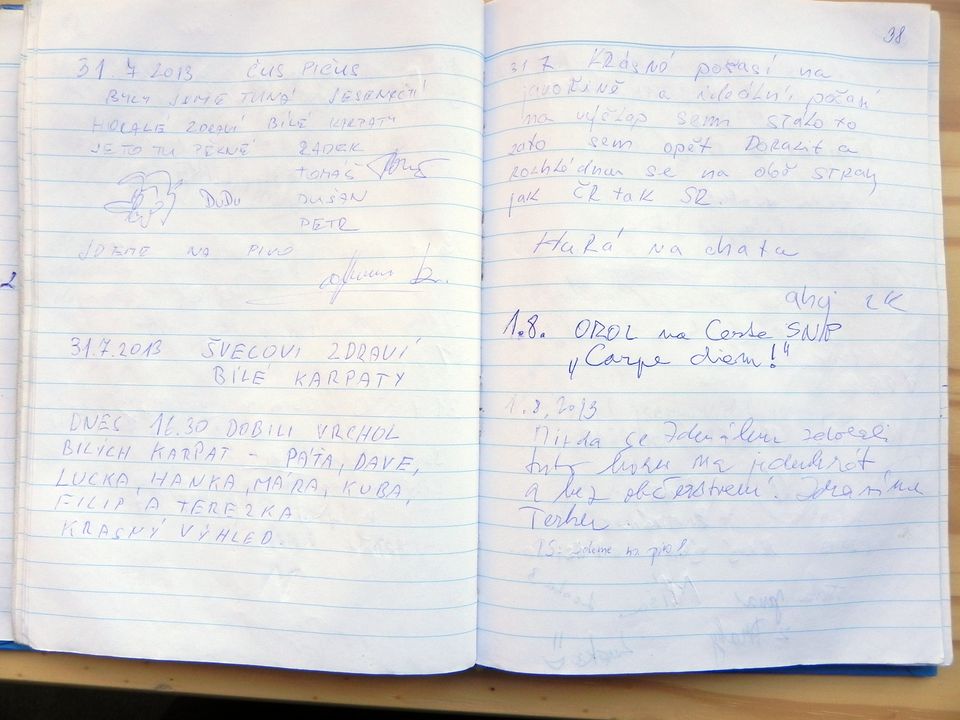 31.7 2013 ČUS PIČUS
BYLY JSME TUNÁ JESENIČTÍ
HORALÉ ZDRAVÍ BÍLÉ KARPATY
JE TO TU PĚKNÉ RADEK
TOMÁŠ
DUDU DUŠAN
PETR
JDEME NA PIVO
31.7.2013 ŠVECOVI ZDRAVÍ
BÍLÉ KARPATY
DNES 16.30 DOBILI VRCHOL
BILÍCH KARPAT - PÁŤA, DAVE,
LUCKA, HANKA, MÁRA, KUBA,
FILIP A TEREZKA.
KRASNÝ VÝHLED.
38
31 7 Krásné počasí na
javořině a ideální počasí
na výšlap sem stálo to
zato sem opět Dorazit a
rozhlédnu se na obě strany
jak ČR tak SR.
Hurá na chatu
ahoj ZK
1.8. OROL na Ceste SNP
"Carpe diem!"
1.8.2013
Mirda se Zdenálem zdolali
tuto horu na jedenkrát
a bez občerstvení.
PS: Jdeme na pivo!